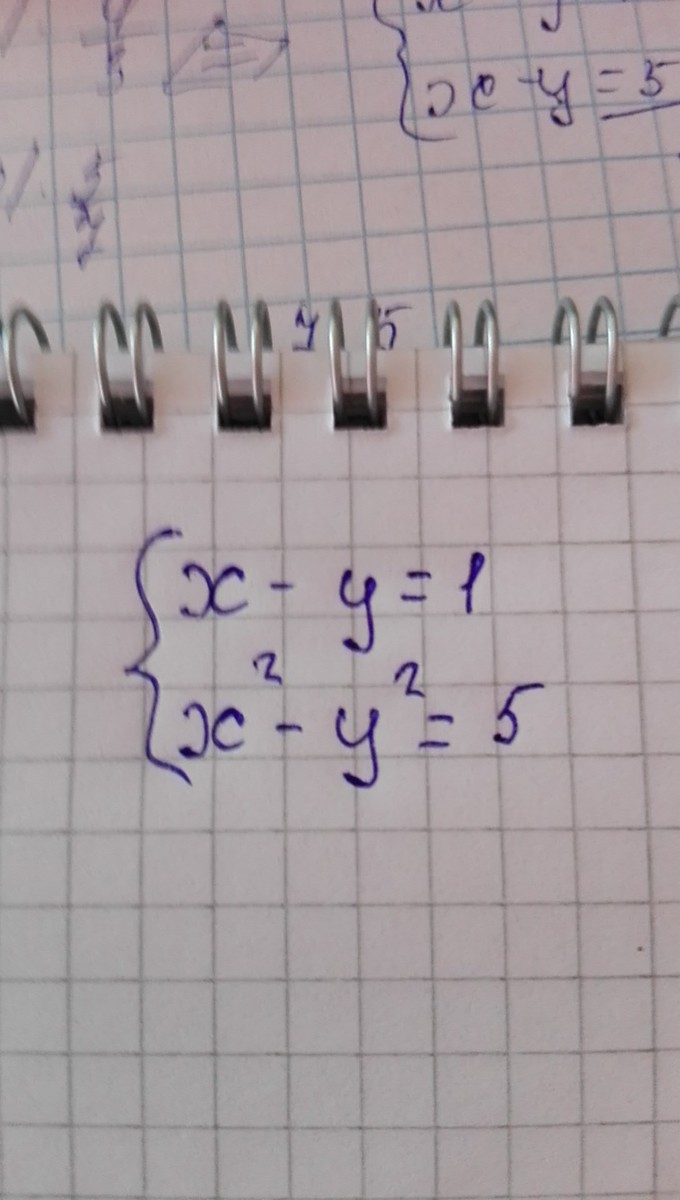 x - y = 5
y 5
x - y = 1
x² - y² = 5